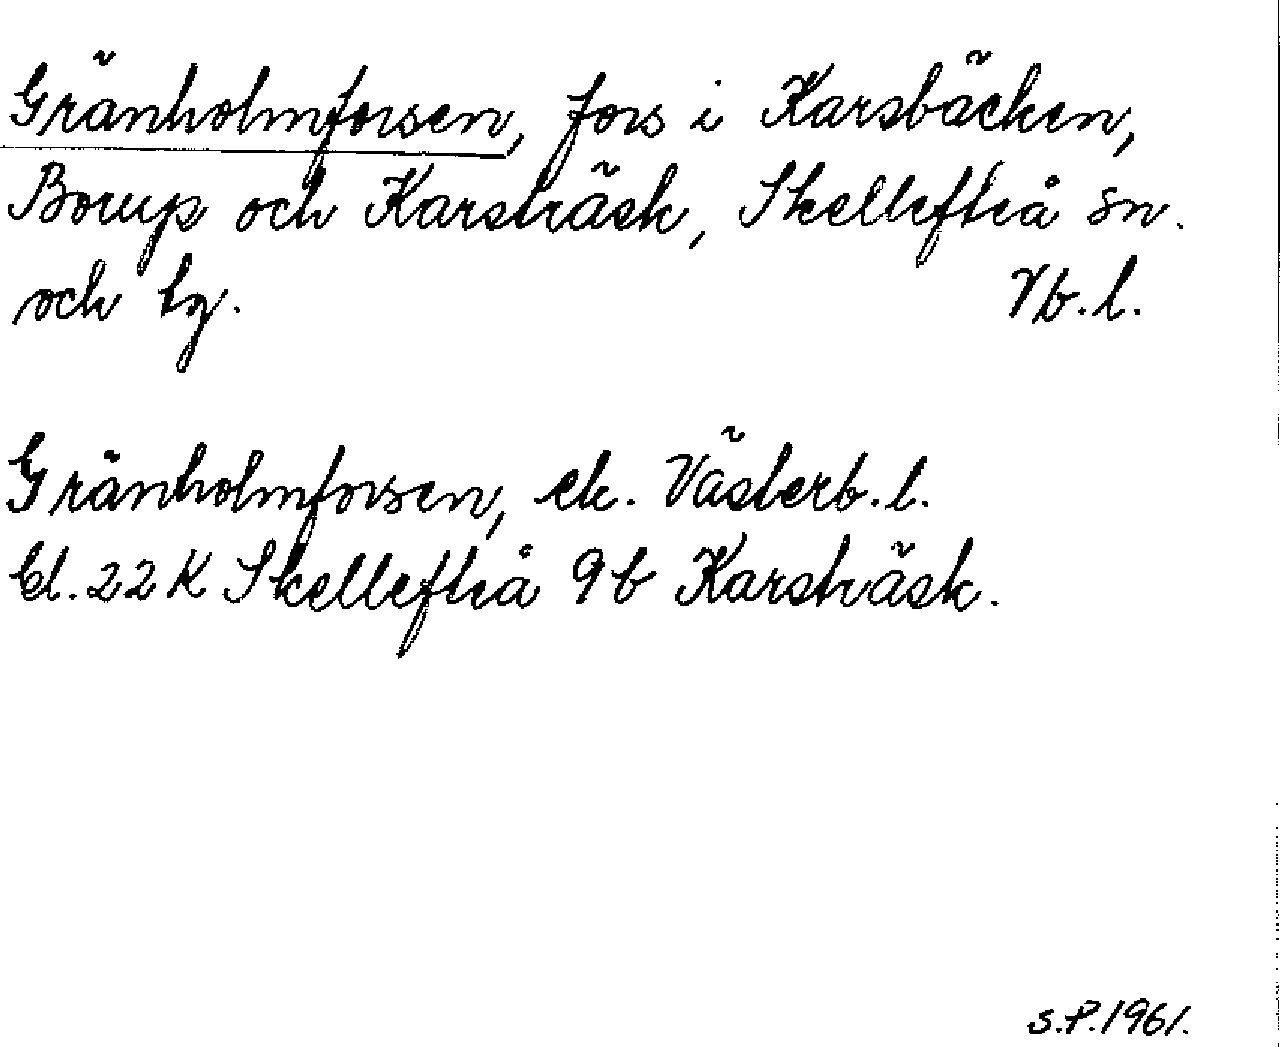 Gränholmforsen, fors i Karsbäcken,
Borup och Karsträsk, Skellefteå sn.
och tg. Vb.l.
Gränholmforsen, ek. Västerb.l.
Bl. 22 K Skellefteå 9b Karsträsk.
S.P. 1961.